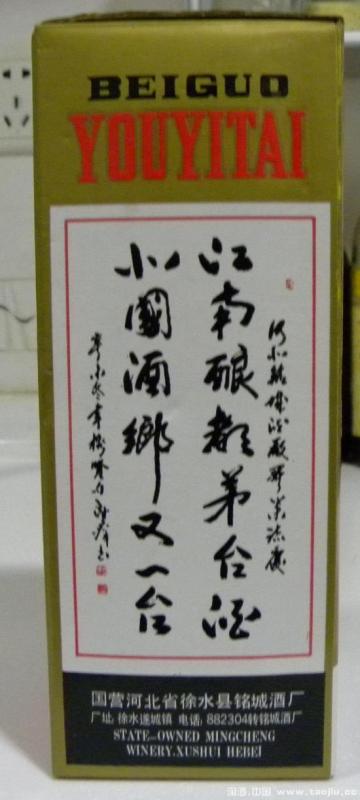 BEIGUO
YOUYITAI
江南酿都茅台酒
北國酒鄉又一台
国营河北省徐水县铭城酒厂
厂址:徐水遂城镇 电话:882304转铭城酒厂
STATE—OWNED MINGCHENG
WINERY.XUSHUI HEBEI
淘酒.中国 www.taojiu.cc